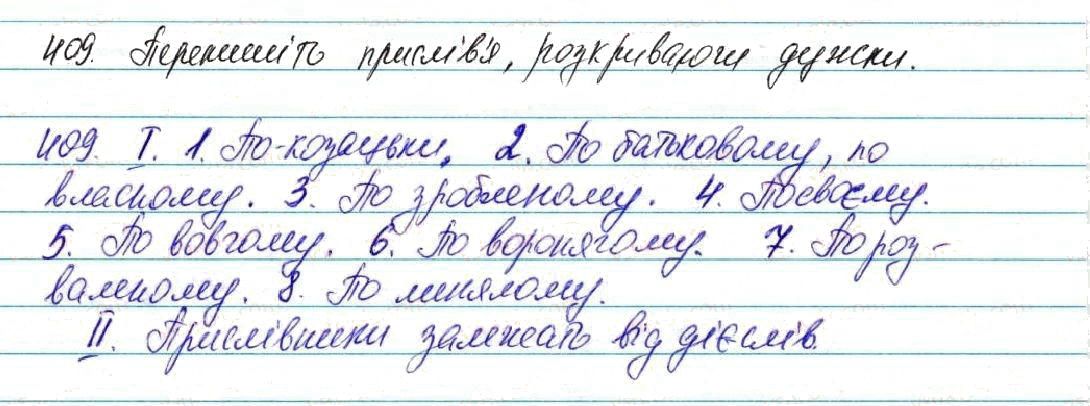 409. Перепишіть прислів'я, розкриваючи дужки.
409. I. 1. По-козацьки. 2. По батьковому, по
власному. 3. По зробленому. 4. Посвоєму.
5. По вовчому. 6. По воронячому. 7. По роз-
валеному. 8. По линялому.
II. Прислівники залежать від дієслів.